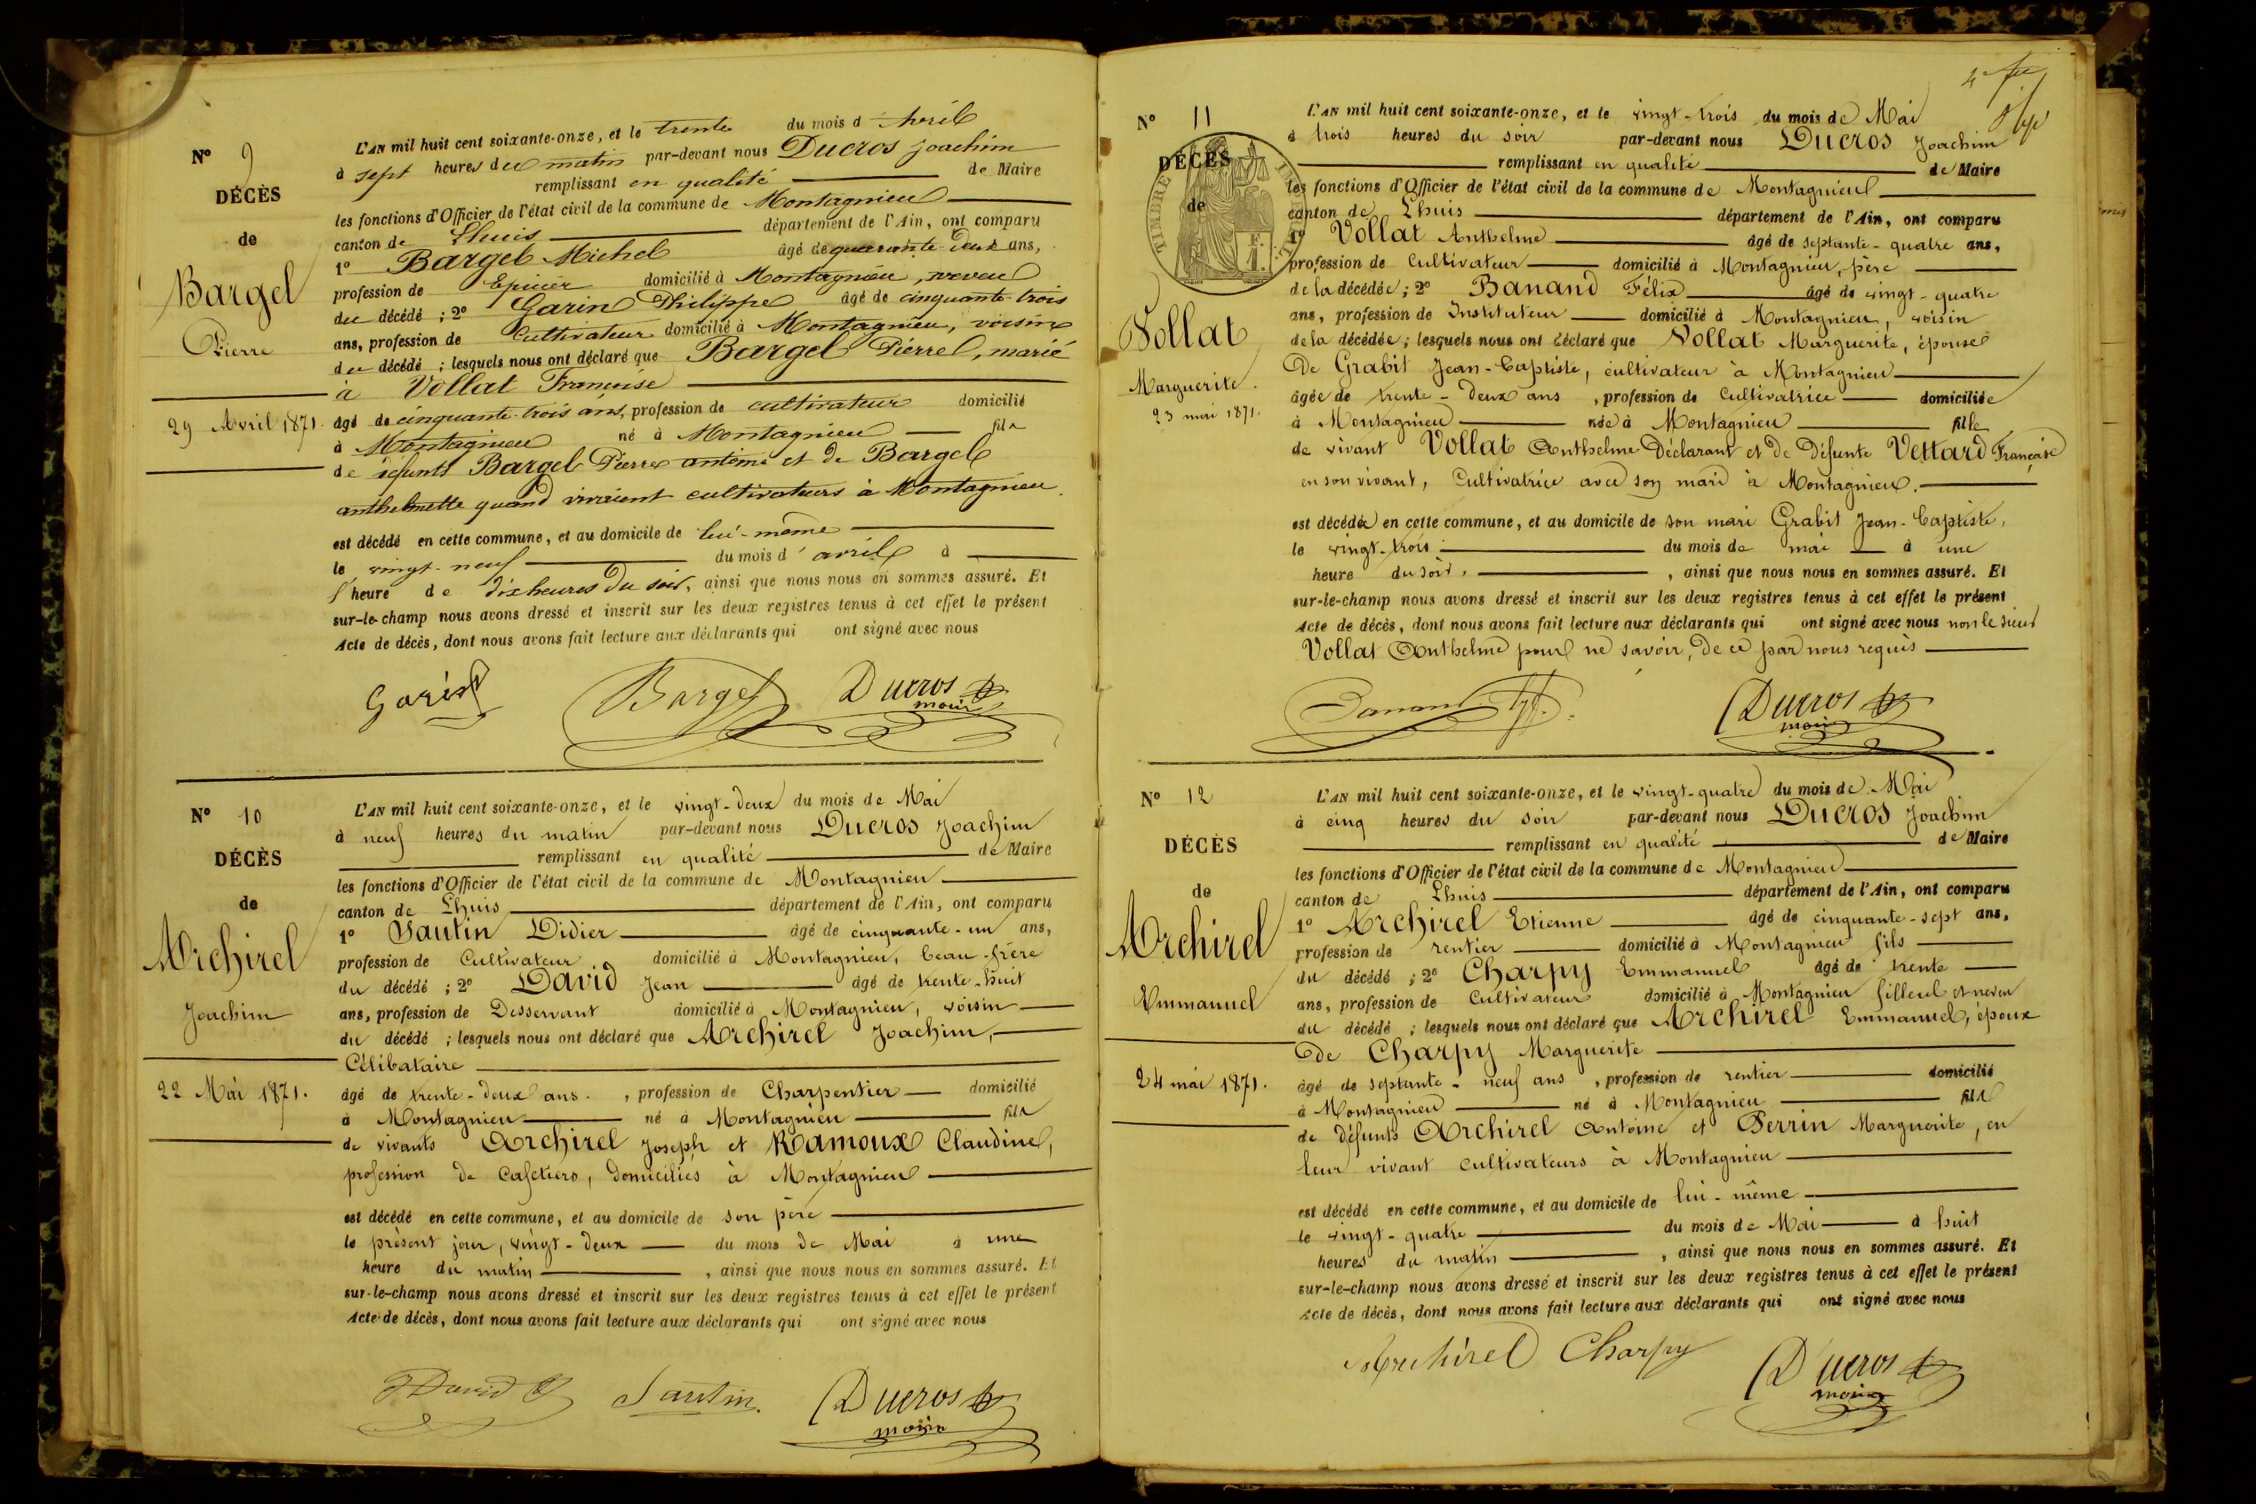 N° 9
DÉCÈS
de
Bargel
Pierre
29 Avril 1871.
L'AN mil huit cent soixante-onze, et le trente du mois d'Avril
à sept heures du matin par-devant nous Ducros Joachim
remplissant en qualité de Maire
les fonctions d'Officier de l'état civil de la commune de Montagnieu
canton de Lhuis département de l'Ain, ont comparu
1° Bargel Michel âgé de quarante-deux ans,
profession de Epicier domicilié à Montagnieu, neveu
du décédé ; 2° Garin Philippe âgé de cinquante-trois
ans, profession de Cultivateur domicilié à Montagnieu, voisin
du décédé ; lesquels nous ont déclaré que Bargel Pierre, marié
à Vollat Françoise
âgé de cinquante-trois ans, profession de cultivateur domicilié
à Montagnieu né à Montagnieu fils
de défunts Bargel Pierre antoine et de Bargel
anthelmette quand vivaient cultivateurs à Montagnieu.
est décédé en cette commune, et au domicile de lui-même
le vingt-neuf du mois d'avril à
l'heure de dix heures du soir, ainsi que nous nous en sommes assuré. Et
sur-le-champ nous avons dressé et inscrit sur les deux registres tenus à cet effet le présent
Acte de décès, dont nous avons fait lecture aux déclarants qui ont signé avec nous
Garin Bargel Ducros
maire
N° 10
DÉCÈS
de
Archirel
Joachim
22 Mai 1871.
L'AN mil huit cent soixante-onze, et le vingt-deux du mois de Mai
à neuf heures du matin par-devant nous Ducros Joachim
remplissant en qualité de Maire
les fonctions d'Officier de l'état civil de la commune de Montagnieu
canton de Lhuis département de l'Ain, ont comparu
1° Sautin Didier âgé de cinquante-un ans,
profession de Cultivateur domicilié à Montagnieu, beau-frère
du décédé ; 2° David Jean âgé de trente-huit
ans, profession de Desservant domicilié à Montagnieu, voisin
du décédé ; lesquels nous ont déclaré que Archirel Joachim,
Célibataire
âgé de trente-deux ans. , profession de Charpentier domicilié
à Montagnieu né à Montagnieu fils
de vivants Archirel Joseph et Ramoux Claudine,
profession de Cafetiers, domiciliés à Montagnieu
est décédé en cette commune, et au domicile de son père
le présent jour, vingt-deux du mois de Mai à une
heure du matin , ainsi que nous nous en sommes assuré. Et
sur-le-champ nous avons dressé et inscrit sur les deux registres tenus à cet effet le présent
Acte de décès, dont nous avons fait lecture aux déclarants qui ont signé avec nous
David Sautin. Ducros
maire
N° 11
DÉCÈS
de
TIMBRE
Vollat
Marguerite.
23 mai 1871.
L'AN mil huit cent soixante-onze, et le vingt-trois du mois de Mai
à trois heures du soir par-devant nous Ducros Joachim
remplissant en qualité de Maire
les fonctions d'Officier de l'état civil de la commune de Montagnieu
canton de Lhuis département de l'Ain, ont comparu
1° Vollat Anthelme âgé de septante-quatre ans,
profession de Cultivateur domicilié à Montagnieu, père
de la décédée ; 2° Banand Félix âgé de vingt-quatre
ans, profession de Instituteur domicilié à Montagnieu, voisin
de la décédée ; lesquels nous ont déclaré que Vollat Marguerite, épouse
De Grabit Jean-Baptiste, cultivateur à Montagnieu
âgée de trente-deux ans , profession de Cultivatrice domiciliée
à Montagnieu née à Montagnieu fille
de vivant Vollat Anthelme Déclarant et de Défunte Vettard Françoise
en son vivant, Cultivatrice avec son mari à Montagnieu.
est décédée en cette commune, et au domicile de son mari Grabit Jean-Baptiste,
le vingt-trois du mois de mai à une
heure du soir, , ainsi que nous nous en sommes assuré. Et
sur-le-champ nous avons dressé et inscrit sur les deux registres tenus à cet effet le présent
Acte de décès, dont nous avons fait lecture aux déclarants qui ont signé avec nous non le sieur
Vollat Anthelme pour ne savoir, de ce par nous requis
Banand Ducros
maire
N° 12
DÉCÈS
de
Archirel
Emmanuel
24 mai 1871.
L'AN mil huit cent soixante-onze, et le vingt-quatre du mois de Mai
à cinq heures du soir par-devant nous Ducros Joachim
remplissant en qualité de Maire
les fonctions d'Officier de l'état civil de la commune de Montagnieu
canton de Lhuis département de l'Ain, ont comparu
1° Archirel Etienne âgé de cinquante-sept ans,
profession de rentier domicilié à Montagnieu fils
du décédé ; 2° Charpy Emmanuel âgé de trente
ans, profession de Cultivateur domicilié à Montagnieu filleul et neveu
du décédé ; lesquels nous ont déclaré que Archirel Emmanuel, époux
De Charpy Marguerite
âgé de septante-neuf ans , profession de rentier domicilié
à Montagnieu né à Montagnieu fils
de défunts Archirel Antoine et Perrin Marguerite, en
leur vivant cultivateurs à Montagnieu
est décédé en cette commune, et au domicile de lui-même
le vingt-quatre du mois de Mai à huit
heures du matin , ainsi que nous nous en sommes assuré. Et
sur-le-champ nous avons dressé et inscrit sur les deux registres tenus à cet effet le présent
Acte de décès, dont nous avons fait lecture aux déclarants qui ont signé avec nous
Archirel Charpy Ducros
maire